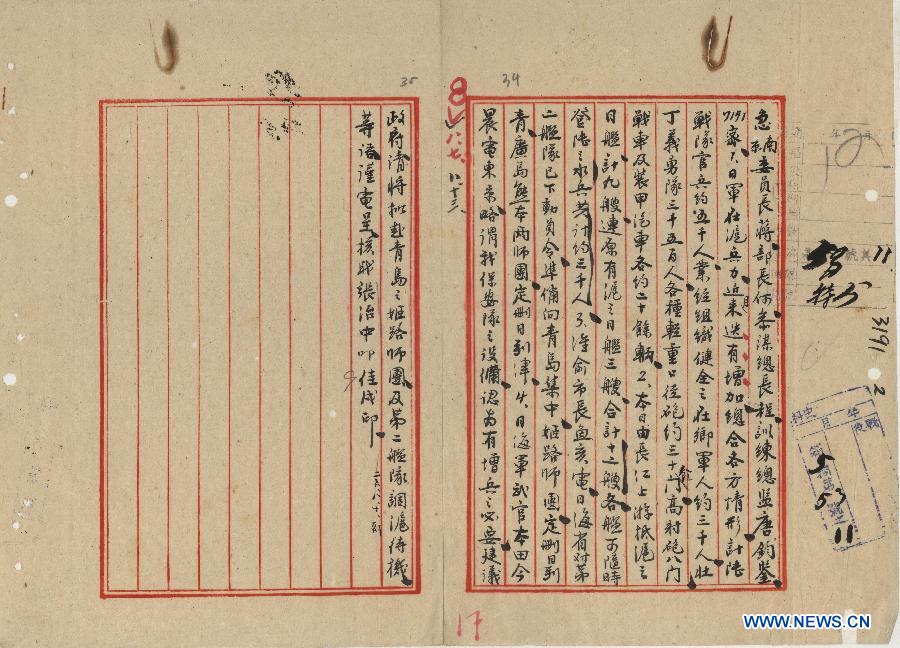 急南京委員長蔣部長何參謀總長程訓練總監唐鈞鑒
密1、日軍在滬兵力近來迭有增加總合各方情形計陸
戰隊官兵約五千人業經組織健全之在鄉軍人約三千人壯
丁義勇隊三千五百人各種輕重口徑砲約三十門高射砲八門
戰車及裝甲汽車各約二十餘輛2、本日由長江上游抵滬之
日艦計九艘連原有滬之日艦三艘合計十二艘各艦可隨時
登陸之水兵共計約三千人3、准俞市長魚亥電日海省對第
二艦隊已下動員令準備向青島集中姬路師團定刪日到
青廣島熊本兩師團定刪日到津4、日海軍武官本田今
晨電東京略謂我保安隊之設備認為有增兵之必要建議
政府請將擬赴青島之姬路師團及第二艦隊調滬待機
等語謹電呈核職張治中叩佳戌印
34
35
8
八.七.
八十三
7191
3191
2
11
5
53
11
17
WWW.NEWS.CN